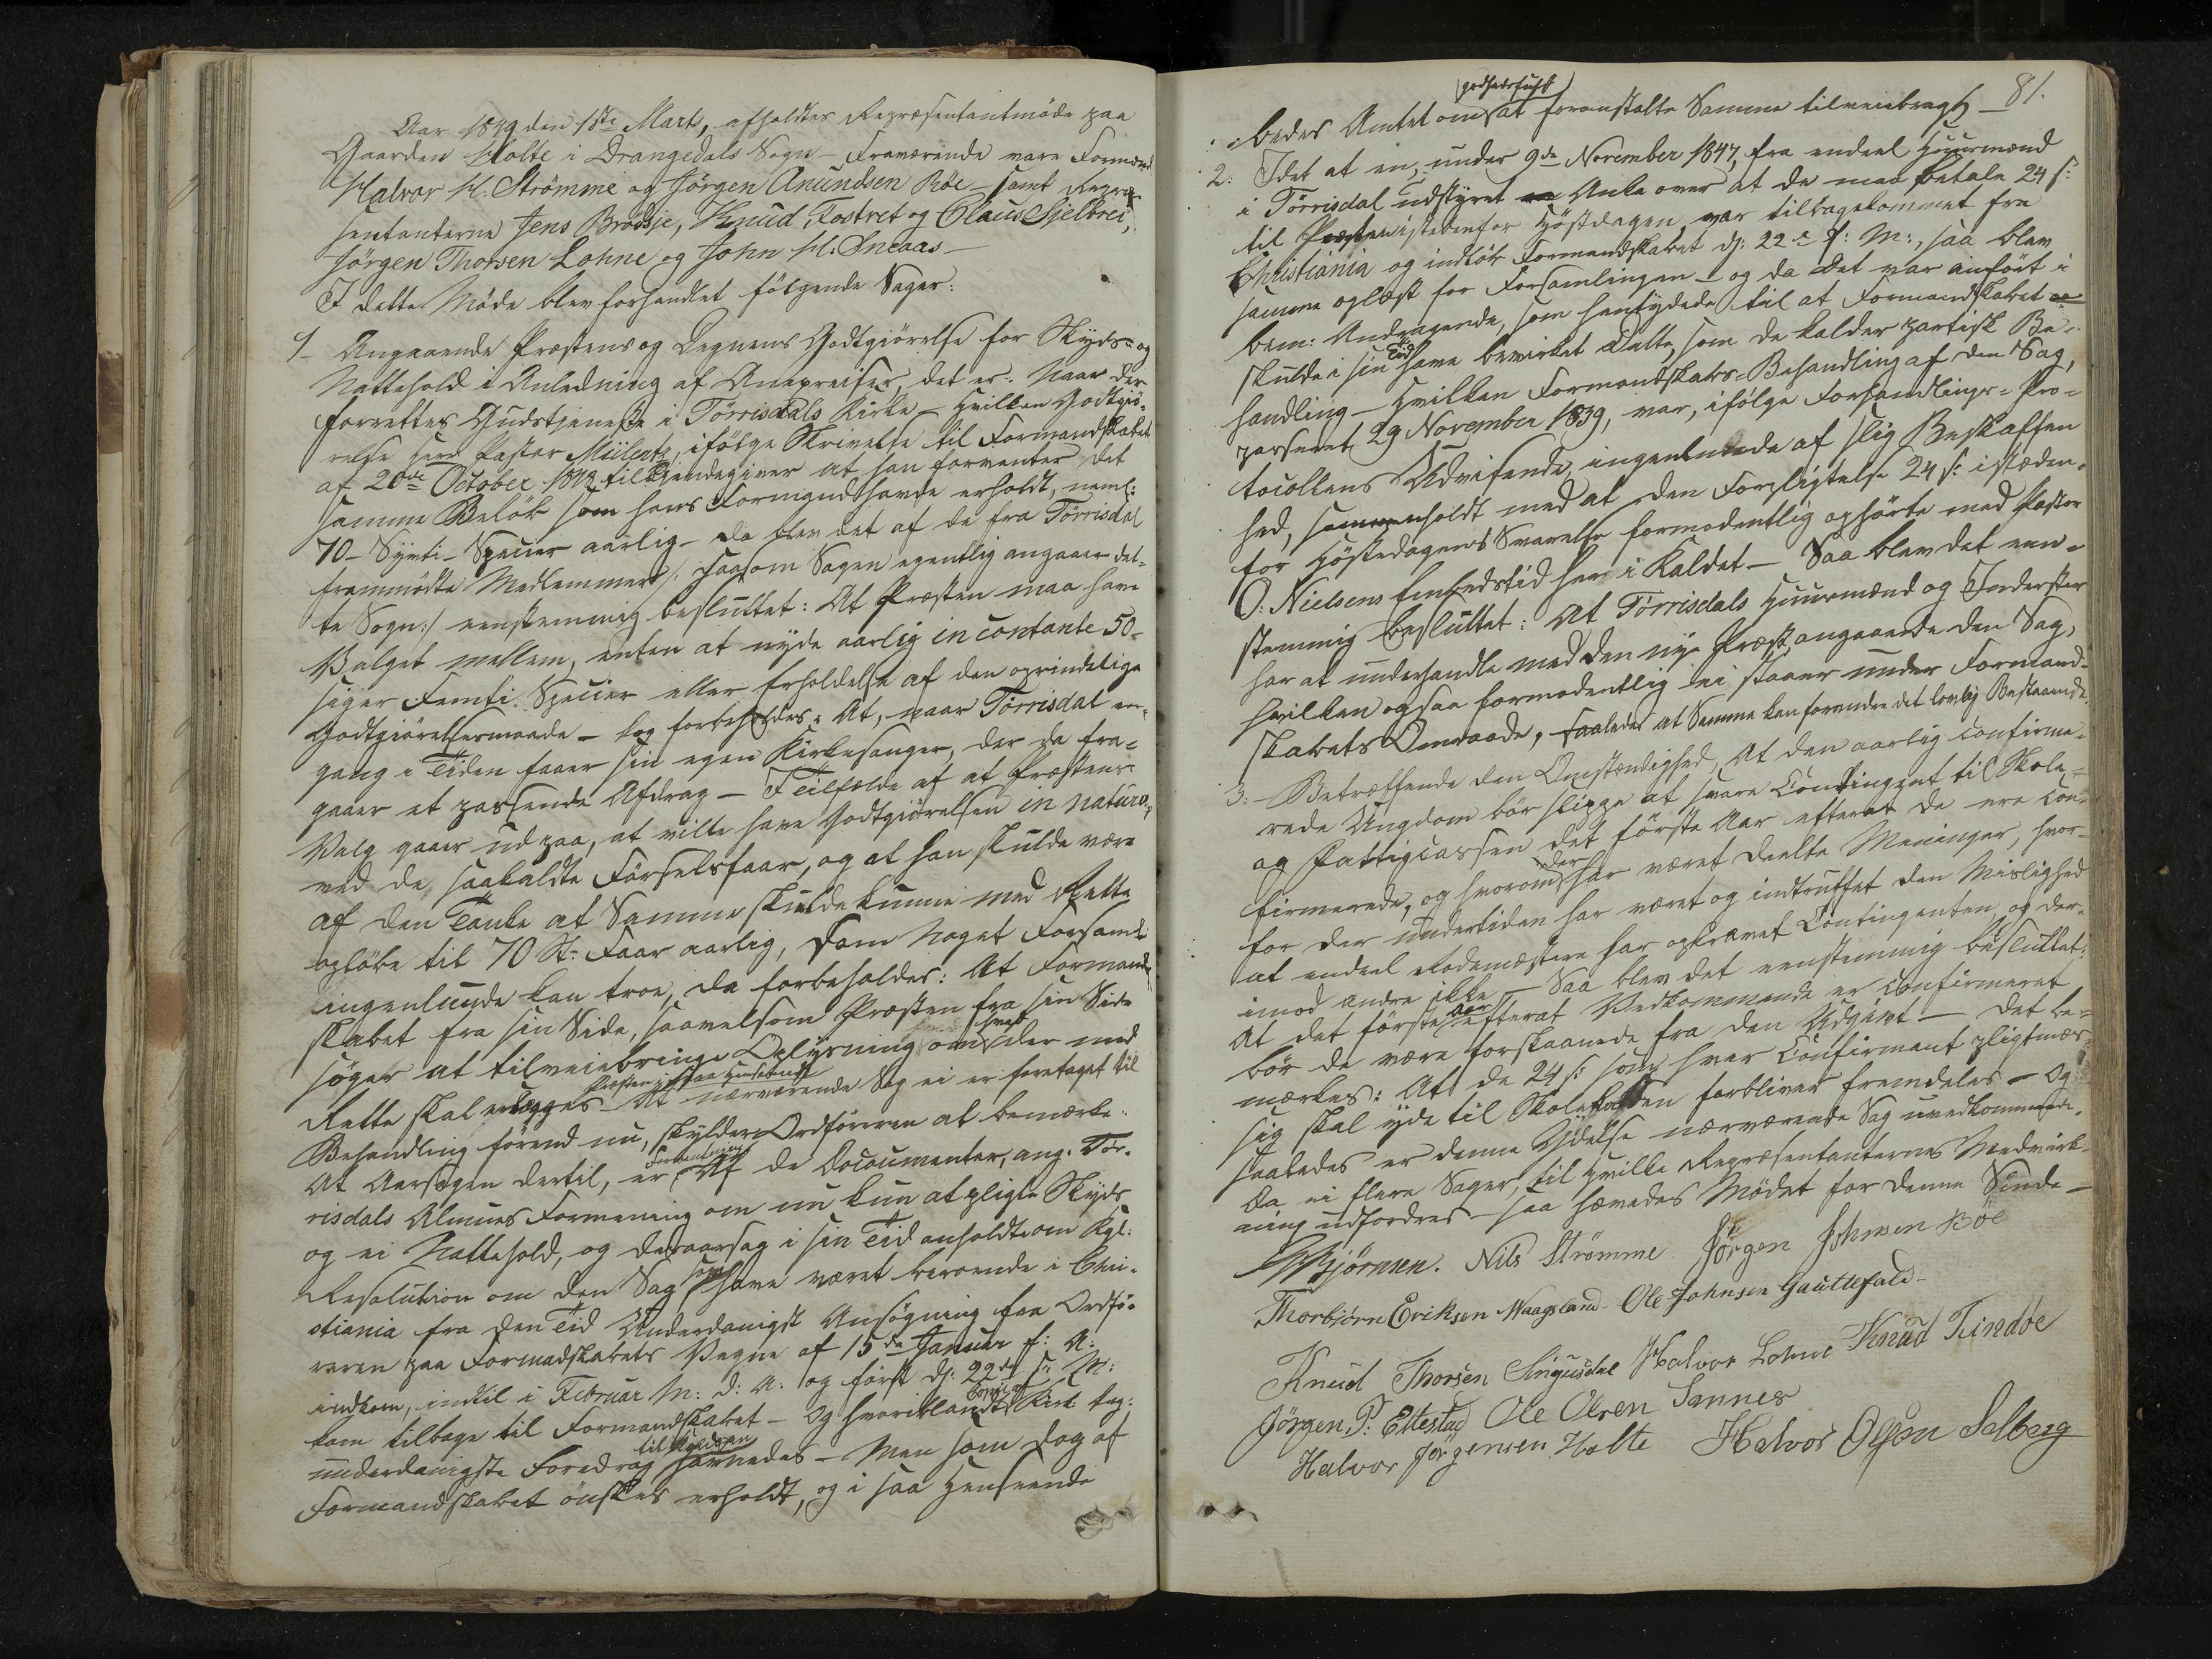 Aar 1849 den 1ste Marts, afholdtes Repræsentantmöde paa
Gaarden Holte i Drangedals Sogn – Fraværende vare Formænd
Halvor H. Strömme og Jörgen Anundsen Böe – samt Repræ-
sentanterne Jens Brödsje, Knud Tostvet og Claus Gjelbrei,
Jörgen Thorsen Lohne og John H. Sneaas –
I dette Möde blev forhandlet fölgende Sager:
1 – Angaaende Præstens og Degnens Godtgiörelse for Skyds- og
Nattehold i Anledning af Annexreiser, det er: naar der
forrettes Gudstjeneste i Törrisdals Kirke – hvilken Godtgiö-
relse Herr Pastor Mülertz, ifölge Skrivelse til Formandskabet
af 20de October tilkjendegiver at han forventer det
samme Belöb som hans Formand havde erholdt, neml:
70 – Sÿvti – Specier aarlig – da blev det af de fra Törrisdal
fremmödte Medlemmer /: saasom Sagen egentlig angaaer det-
te Sogn:/ eenstemmig besluttet: At Præsten maa have
Valget mellem, enten at nyde aarlig in contante 50 –
siger Femti Specier eller Erholdelse af den oprindelige
Godtgiörelsesmaade – dog forbeholdes: At, naar Törrisdal en-
gang i Tiden faaer sin egen Kirkesanger, der da fra-
gaaer et passende Afdrag – I Tilfælde af at Præstens
Valg gaaer ud paa, at ville have Godtgiörelsen in natura,
ved de saakaldte Förselsfaar, og at han skulde være
af den Tanke at Samme skulde kunne med Rette
oplöbe til 70 St: Faar aarlig, som Noget Forsaml-
ingenlunde kan troe, da forbeholdes: At Formand-
skabet fra sin Side, saavelsom Præsten fra sin Side
söger at tilveiebringe Oplysning om hvad der med
Rette skal erlægges – At nærværende Sag ei er foretaget til
Behandling förend nu, skylder Ordföreren at bemærke:
At Aarsagen dertil, er Af de Documenter, ang. Tör-
risdals Almues Formening om nu kun at pligte Skyds
og ei Nattehold, og desaarsag i sin Tid anholdt om Kgl:
Resolution om den Sag som have været beroende i Chri-
stiania fra den Tid Underdanigst Ansögning fra Ordfö-
reren paa Formandskabets Vegne af 15de Januar f: A:
indkom, indtil i Februar M: d: A: og först d: 22de s: M:
kom tilbage til Formandskabet – Og hvoriblandt Kirk: Dep:
underdanigste Foredrag til Kongen savnedes – Men som dog af
Formandskabet önskes erholdt, og i saa Henseende
81.
bedes Amtet om godhedsfuldt at foranstalte Samme tilveiebragt –
2: Idet at en, under 9de November 1847, fra endeel Huusmænd
i Törrisdal udstyret Anke over at de maa betale 24 s:
til Præsten istedenfor Höstdagen, var tilbagekommet fra
Christiania og indtök Formandskabet d: 22de f: M:, saa blev
samme oplæst for Forsamlingen – og da det var anfört i
bem: Andragende, som hentydede til at Formandskabet
skulde i sin Tid have bevirket dette, som de kalder partisk Be-
handling – hvilken Formandskabs-Behandling af den Sag,
passeret 29 November 1839, var, ifölge Forhandlings-Pro-
tocollens Udvisende, ingenlunde af slig Beskaffen-
hed, sammenholdt med at den Forpligtelse 24 s: isteden-
for Höstedagens Svarelse formodentlig ophörte med Pastor
O: Nielsens Embedstid her i Kaldet – Saa blev det een-
stemmig besluttet: At Törrisdals Huusmænd og Inderster
har at underhandle med den nye Præst angaaende den Sag,
hvilken ogsaa formodentlig ei staaer under Formand-
skabets Omraade, saaledes at Samme kan forandre det lovlig Bestaaende.
3: – Betreffende den Omstændighed, At den aarlig confirme-
rede Ungdom bör slippe at svare Contingent til Skole-
og Fattigcassen det förste Aar efterat de ere con-
firmerede, og hvorom der har været deelte Meninger, hvor-
for der undertiden har været og indtruffet den Mislighed
at endeel Rodemestere har opkrævet Contingenten, og der-
imod andre ikke, – Saa blev det eenstemmig besluttet:
At det förste Aar efterat Vedkommende er confirmeret
bör de være forskaanede fra den Udgivt – Det be-
mærkes: At de 24 s: som hver Confirmant pligtmæs-
sig skal yde til Skolekassen forbliver fremdeles – Og
saaledes er denne Ydelse nærværende Sag uvedkommende.
Da ei flere Sager, til hvilke Repræsentanternes Medvirk-
ning udfordres – saa hævedes Mödet for denne Sinde –
Björnsen. Nils Strömme Jörgen Johnsen Böe
Thorbiörn Eriksen Waagsland – Ole Johnsen Gautefald –
Knud Thorsen Halvor Lohne Knud Tindöe
Jörgen P: Ettestad Ole Olsen Sannes
Halvor Jörgensen Holte Halvor Olsen Solberg